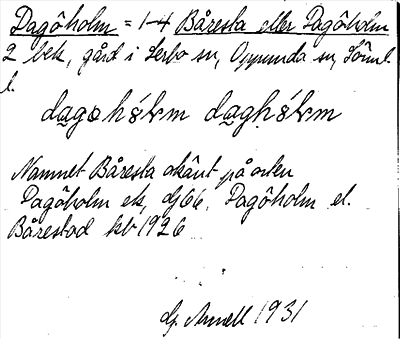 Dagöholm = 1-4 Båresta eller Dagöholm
2 bek, gård i Lerbo sn, Oppunda sn, Söml
l.
dagəhɷ́lm daghɷ́lm
Namnet Båresta okänt på orten
Dagöholm ek, dj 66. Dagöholm el.
Bårestad kb 1926
Gj. Annell 1931